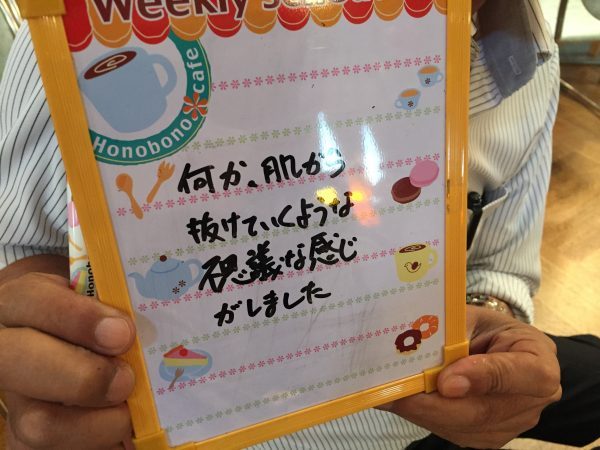 Weekly
Honobono cafe
何か、肌から
抜けていくような
不思議な感じ
がしました
Honobo